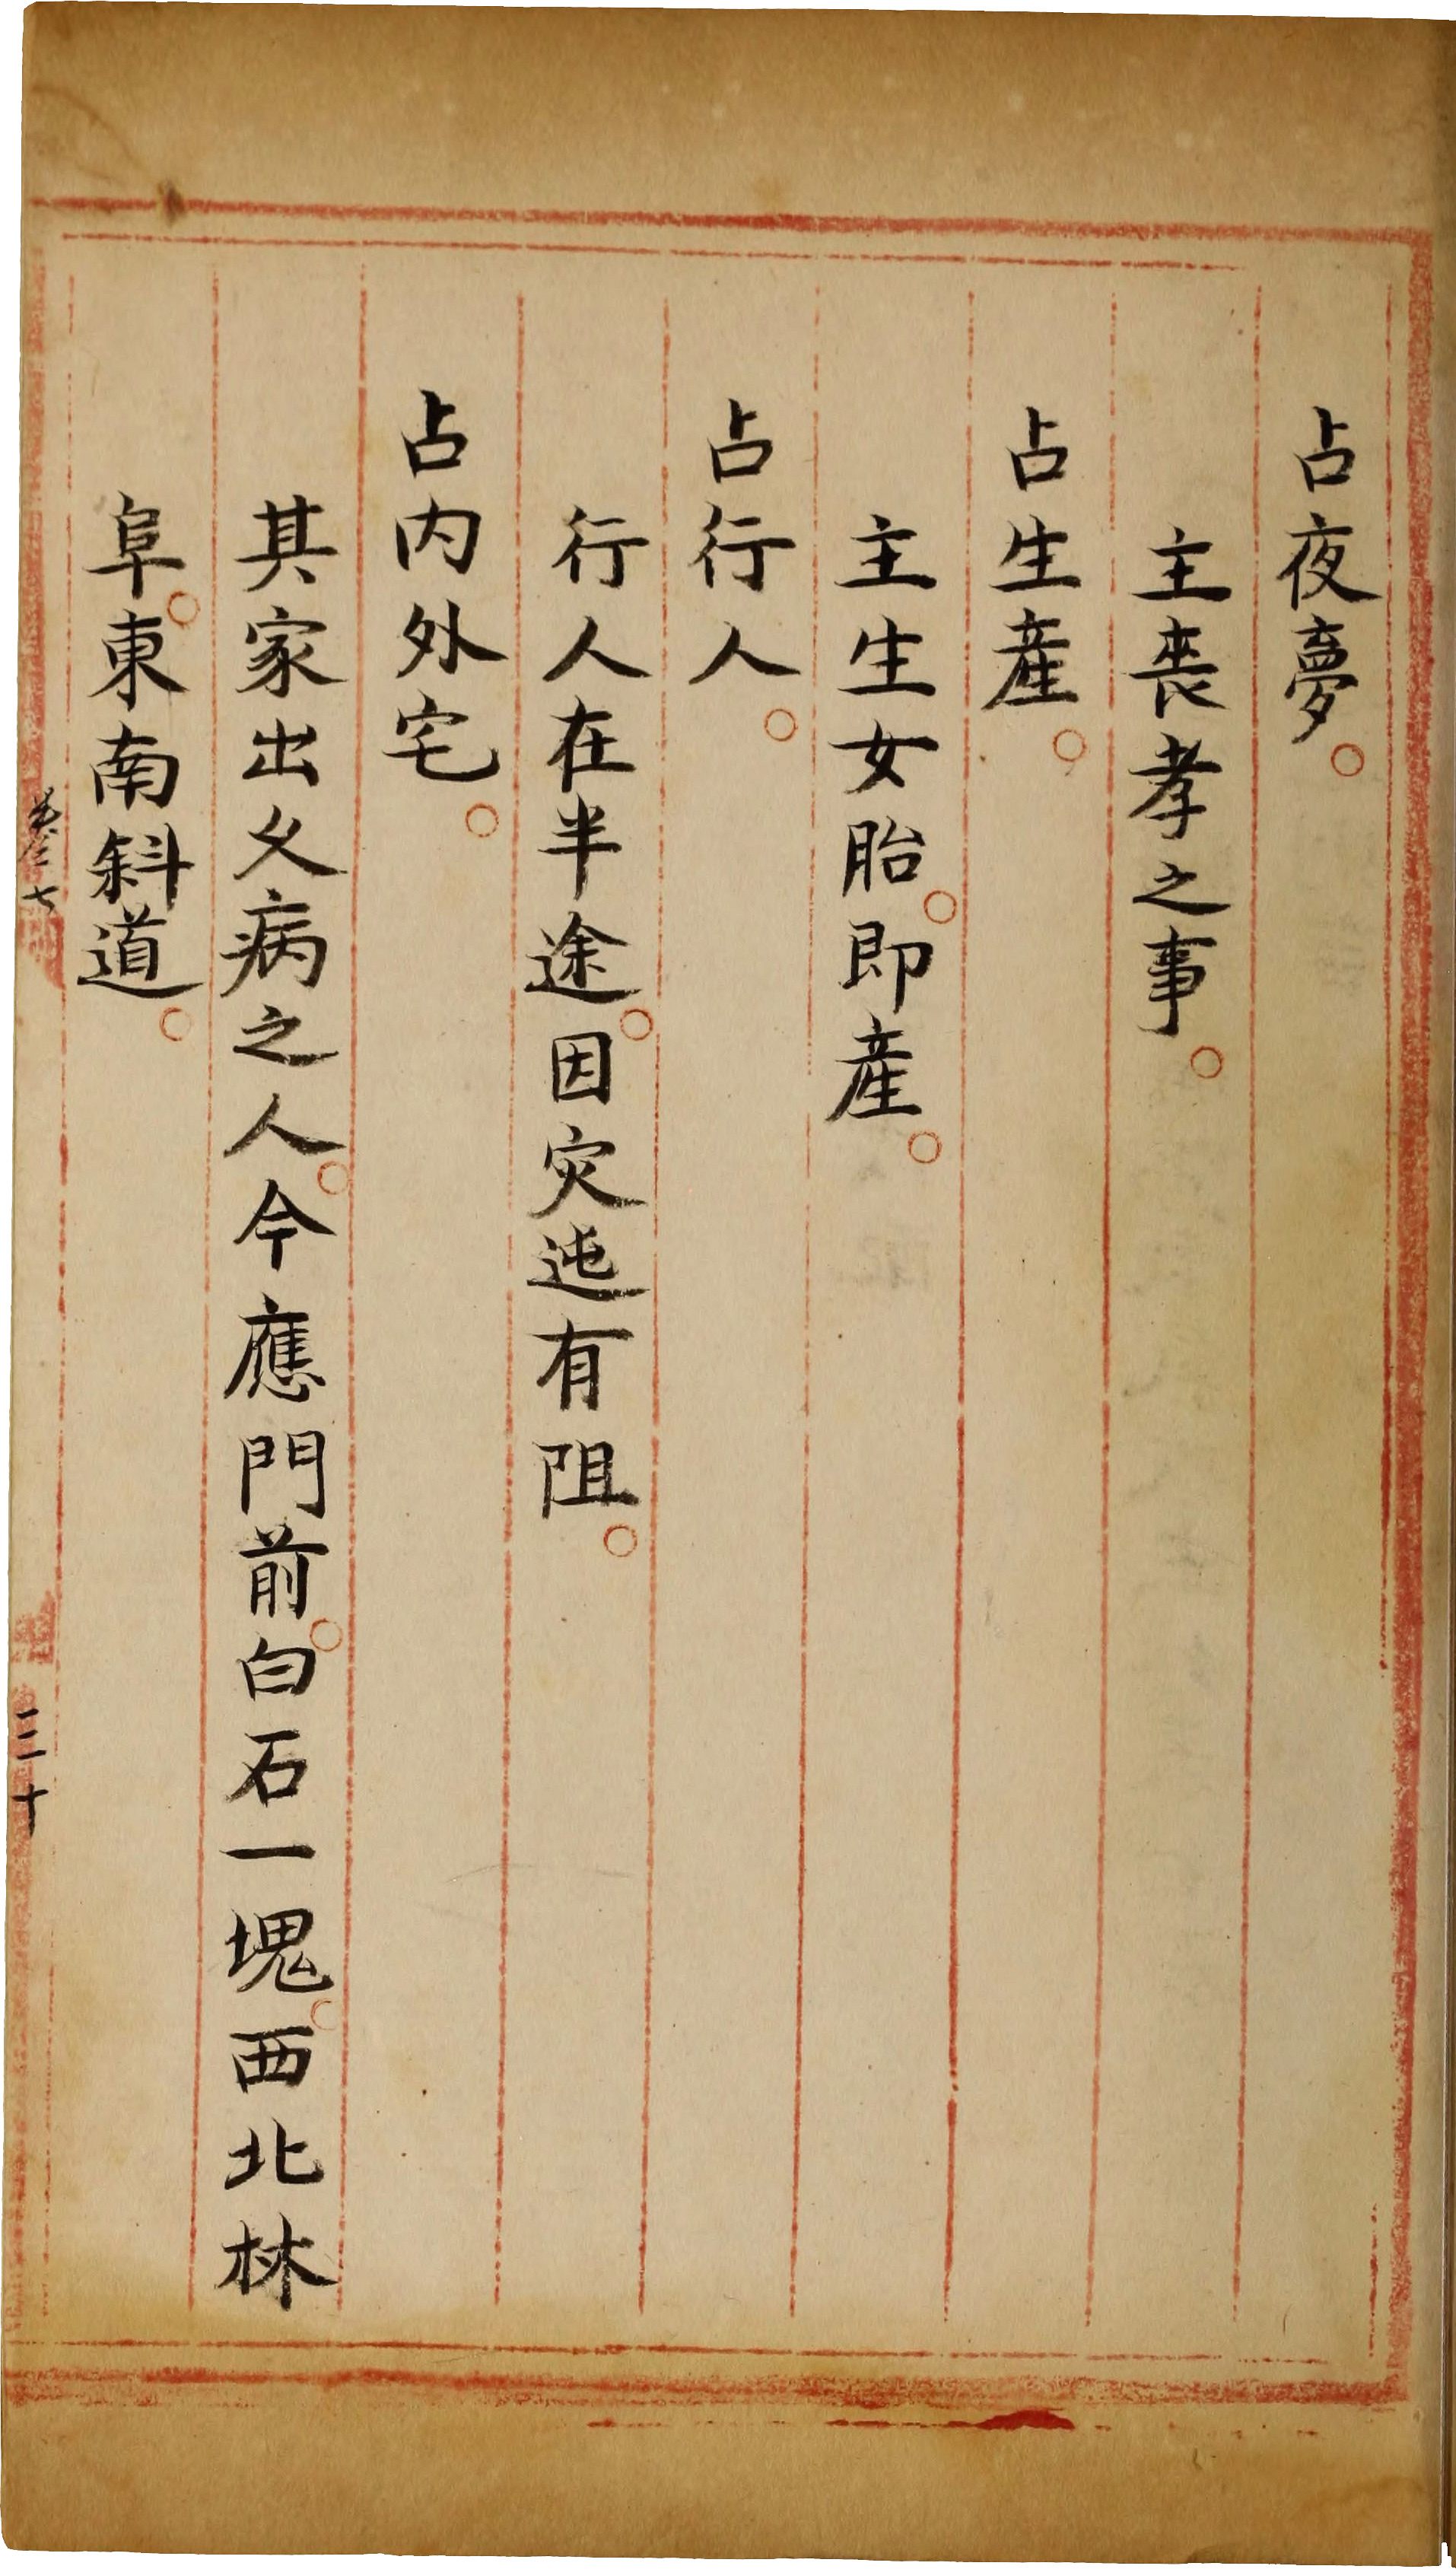 占夜夢。
主喪孝之事。
占生產。
主生女胎。即產。
占行人。
行人在半途。因灾迍有阻。
占内外宅。
其家出乂病之人。今應門前。白石一塊。西北林
阜。東南斜道。
卷之七
三十